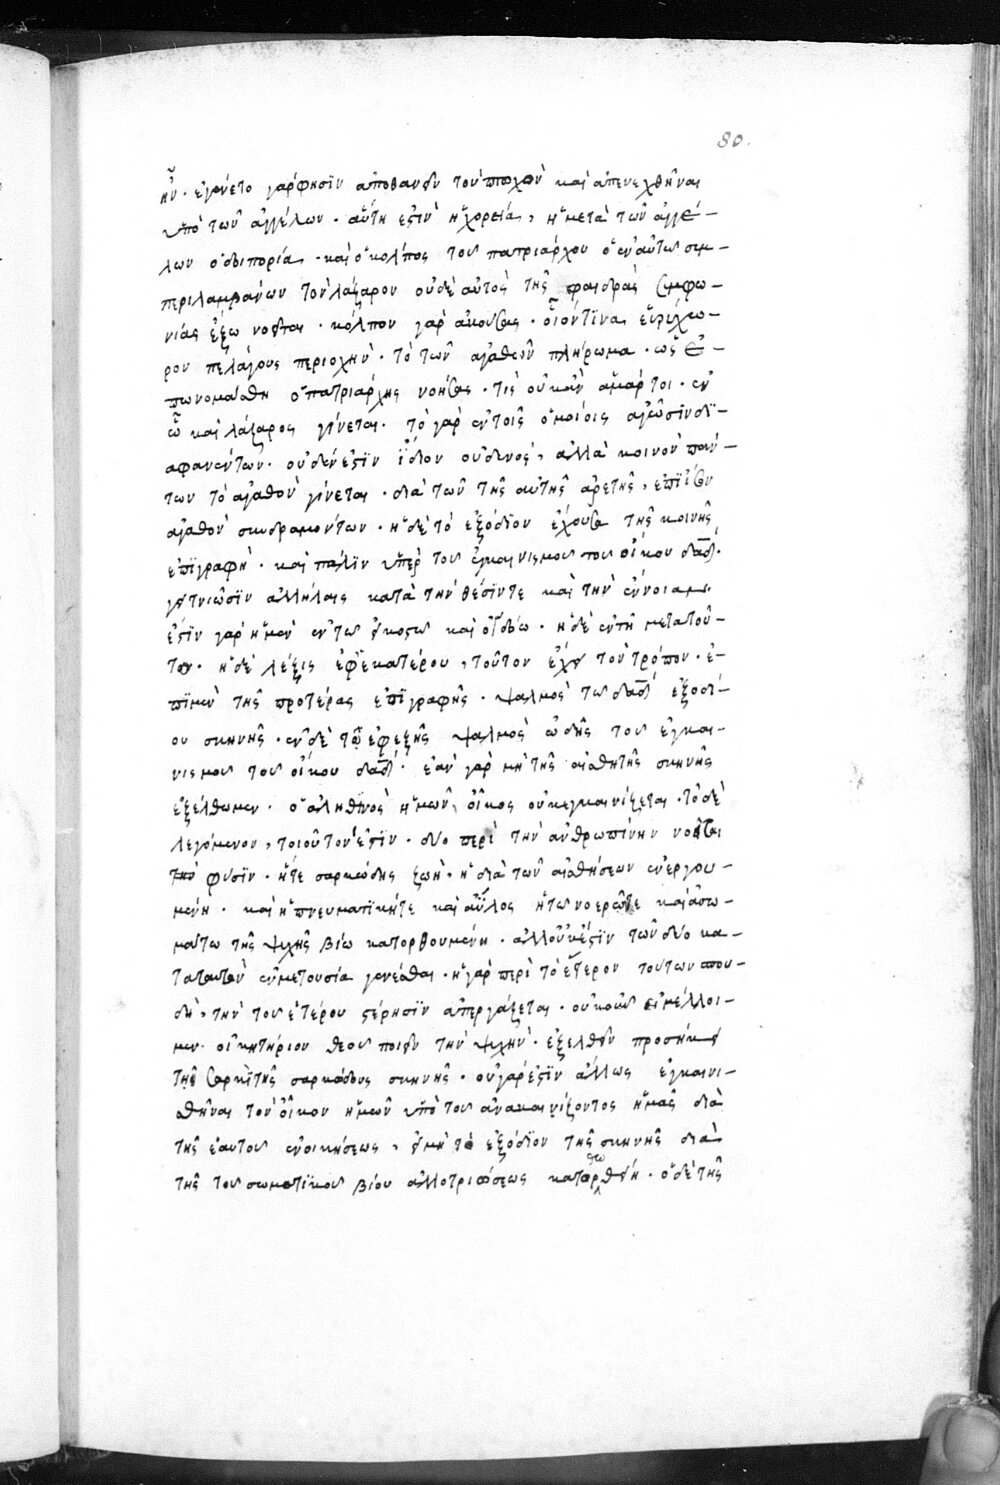 80.
ἦν· ἐγένετο γάρ φησιν ἀποθανεῖν τὸν πτωχὸν καὶ ἀπενεχθῆναι
ὑπὸ τῶν ἀγγέλων· αὕτη ἐστὶν ἡ χορεία, ἡ μετὰ τῶν ἀγγέ-
λων ὁδοιπορία· καὶ ὁ κόλπος του πατριάρχου ὁ ἐν αὑτῶ συμ-
περιλαμβάνων τὸν λάζαρον οὐδὲ αὐτὸς τῆς φαιδρᾶς συμφω-
νίας ἔξω νοεῖται· κόλπον γὰρ ἀκούσας· οἷόν τινα εὐρύχω-
ρον πελάγους περιοχὴν· τὸ τῶν ἀγαθῶν πλήρωμα· ὡς ἐ-
πωνομάσθη ὁ πατριάρχης νοήσας· τίς οὐκ ἂν ἁμάρτοι· ἐν
ὧ καὶ λάζαρος γίνεται· τὸ γὰρ ἐν τοῖς ὁμοίοις ἀγῶσιν δι-
αφανέντων· οὐδέν ἐστιν ἴδιον οὐδενός, ἀλλὰ κοινὸν πάν-
των τὸ ἀγαθὸν γίνεται· διὰ τῶν τῆς αὐτῆς ἀρετῆς, ἐπὶ ἴσον
ἀγαθὸν συνδραμόντων· ἡ δὲ τὸ ἐξόδιον ἔχουσα τῆς κοινῆς
ἐπιγραφὴ· καὶ πάλιν ὑπὲρ του ἐγκαινισμου του οἴκου δαδ·
γειτνιῶσιν ἀλλήλαις κατὰ τὴν θέσιν τε καὶ τὴν ἔννοιαν
ἐστιν γὰρ ἡ μὲν ἐν τω εἰκοστω καὶ ὀγδόω· ἡ δὲ ἐν τῆ μετὰ τοῦ-
τον· ἡ δὲ λέξις ἐφ' ἑκατέρου, τοῦτον ἔχει τὸν τρόπον· ἐ-
πὶ μὲν τῆς προτέρας ἐπιγραφῆς· ψαλμὸς τω δαδ ἐξοδί-
ου σκηνης· ἐν δὲ τῶ ἐφεξῆς ψαλμὸς ὠδῆς του ἐγκαι-
νισμου του οἴκου δαδ· ἐὰν γὰρ μὴ τῆς αἰσθητῆς σκηνῆς
ἐξέλθωμεν· ὁ ἀληθινὸς ἡμῶν, οἶκος οὐκ ἐγκαινίζεται· τὸ δὲ
λεγόμενον, τοιοῦτόν ἐστιν· δύο περὶ τὴν ἀνθρωπίνην νοεῖται
τὴν φύσιν· ἥτε σαρκώδης ζωὴ· ἡ διὰ τῶν αἰσθήσεων ἐνεργου-
μένη· καὶ ἡ πνευματικήτε καὶ ἄϋλος ἡ τω νοερῶτε καὶ ἀσω-
μάτω τῆς ψυχῆς βίω κατορθουμένη· ἀλλ' οὐκ ἔστιν τῶν δύο κα-
τὰ ταὐτὸν ἐν μετουσία γενέσθαι· ἡ γὰρ περὶ τὸ ἕτερον τούτων σπου-
δὴ, τὴν του ἑτέρου στέρησιν ἀπεργάζεται· οὐκοῦν εἰ μέλλοι-
μεν οἰκητήριον θεου ποιεῖν τὴν ψυχὴν· ἐξελθεῖν προσήκει
τῆς σαρκίτης σαρκώδους σκηνης· οὐ γάρ ἐστιν ἄλλως ἐγκαινι-
σθῆναι τὸν οἶκον ἡμῶν ὑπὸ του ἀνακαινίζοντος ἡμᾶς διὰ
τῆς ἑαυτου ἐνοικήσεως, εἰ μὴ τὸ ἐξόδιον τῆς σκηνῆς διὰ
τῆς του σωματικου βίου ἀλλοτριώσεως κατορθωθείη· ὁ δὲ τῆς